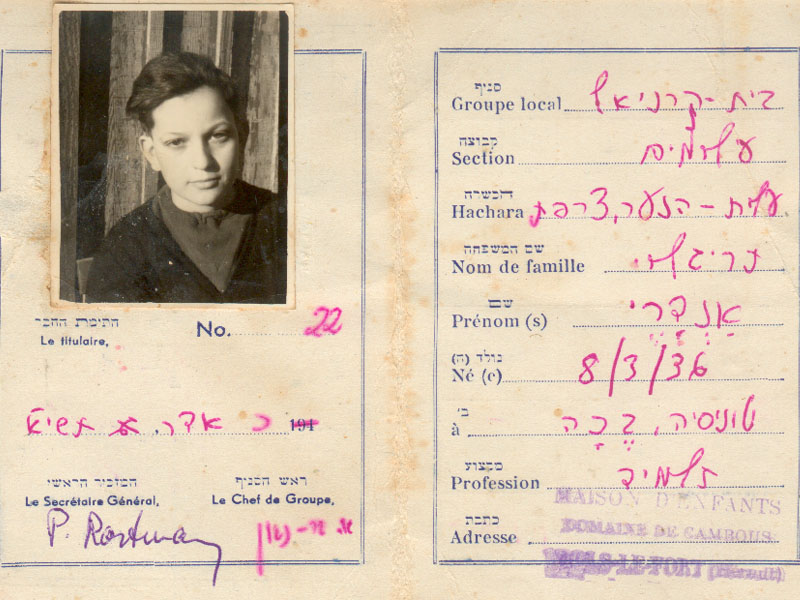 חתימת החבר
Le titulaire,
No. 22
כ אדר, תשי"א 194
המזכיר הראשי
Le Secrétaire Général,
ראש הסניף
Le Chef de Groupe,
P. Rostman
סניף
Groupe local בית-קרניאל
קבוצה
Section
הכשרה
Hachara עלית-הנער, צרפת
שם המשפחה
Nom de famille
שם
Prénom (s) אַנְדְרֵי
נולד (ה)
Né (e) 8/3/36
ב'
à טוניסיה, בֶּכָּה
מקצוע
Profession תלמיד
כתבת
Adresse
MAISON D'ENFANTS
DOMAINE DE CAMBOUS
-LE-FORT (Hérault)